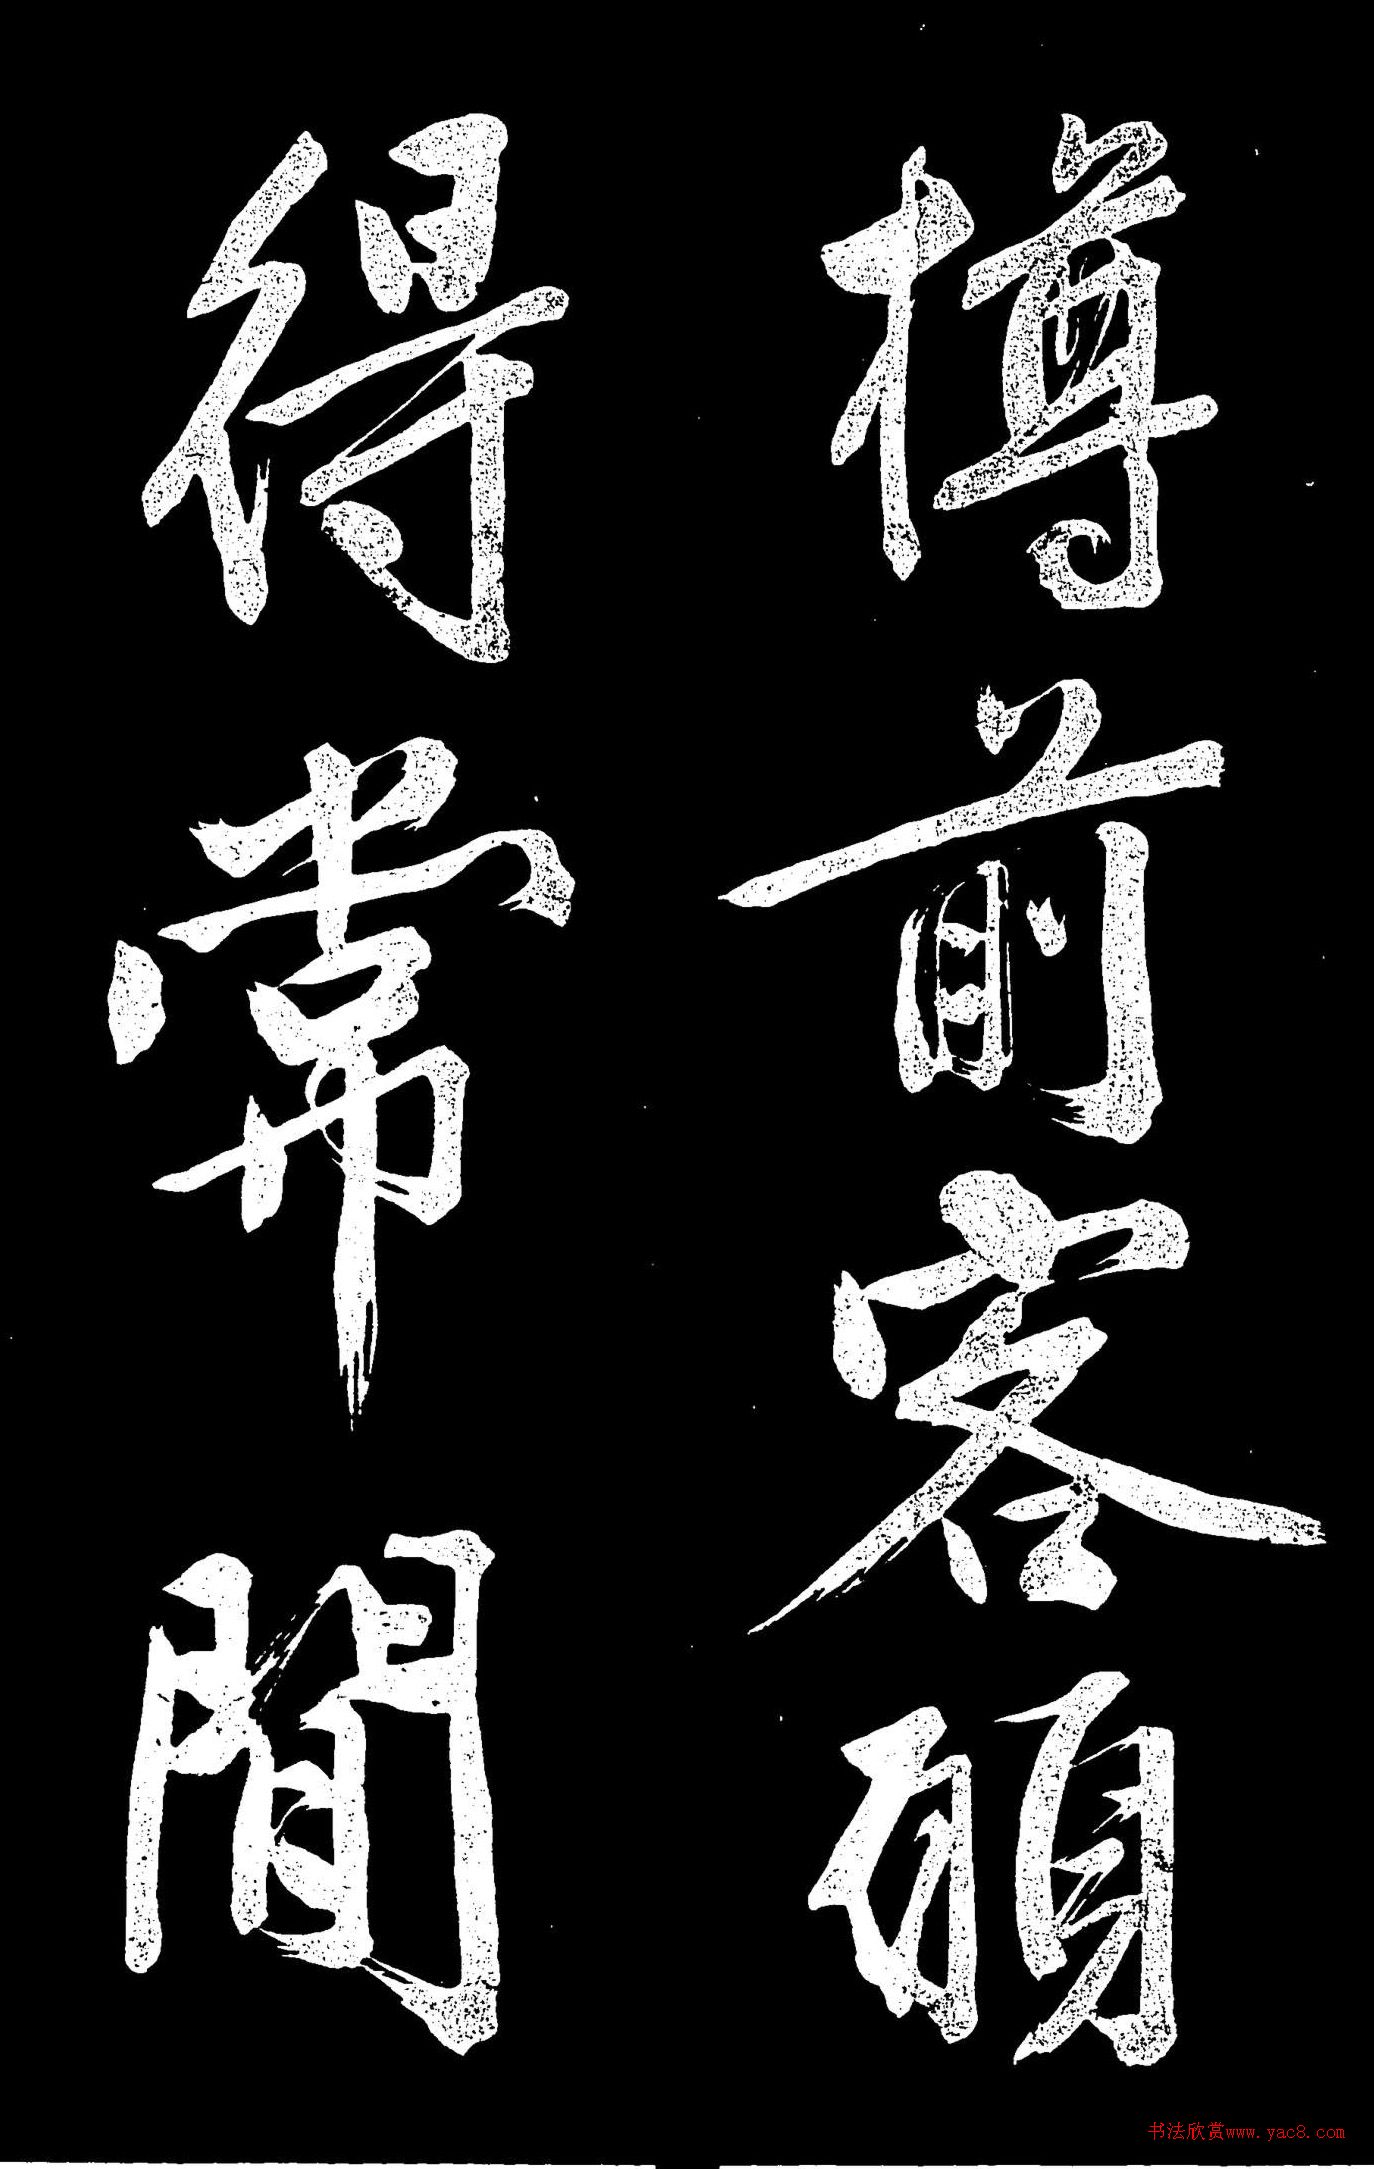 樽前客願
得常閒
书法欣赏www.yac8.com